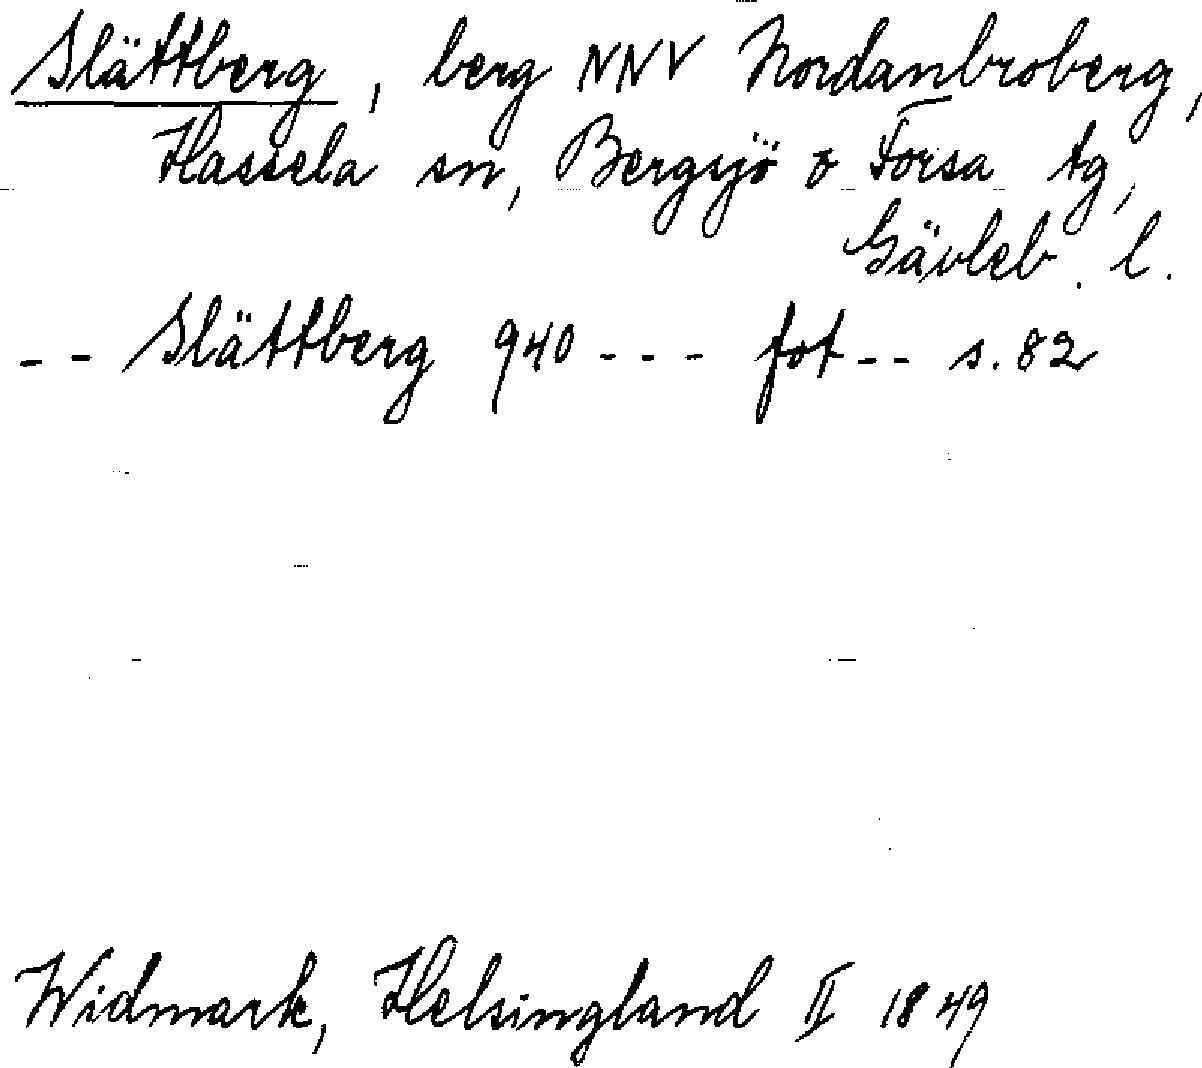 Slättberg, berg NNV Nordanbroberg,
Hassela sn, Bergsjö o Forsa tg,
Gävleb. l.
-- Slättberg 940 --- fot -- s. 82
Widmark, Helsingland II 1849